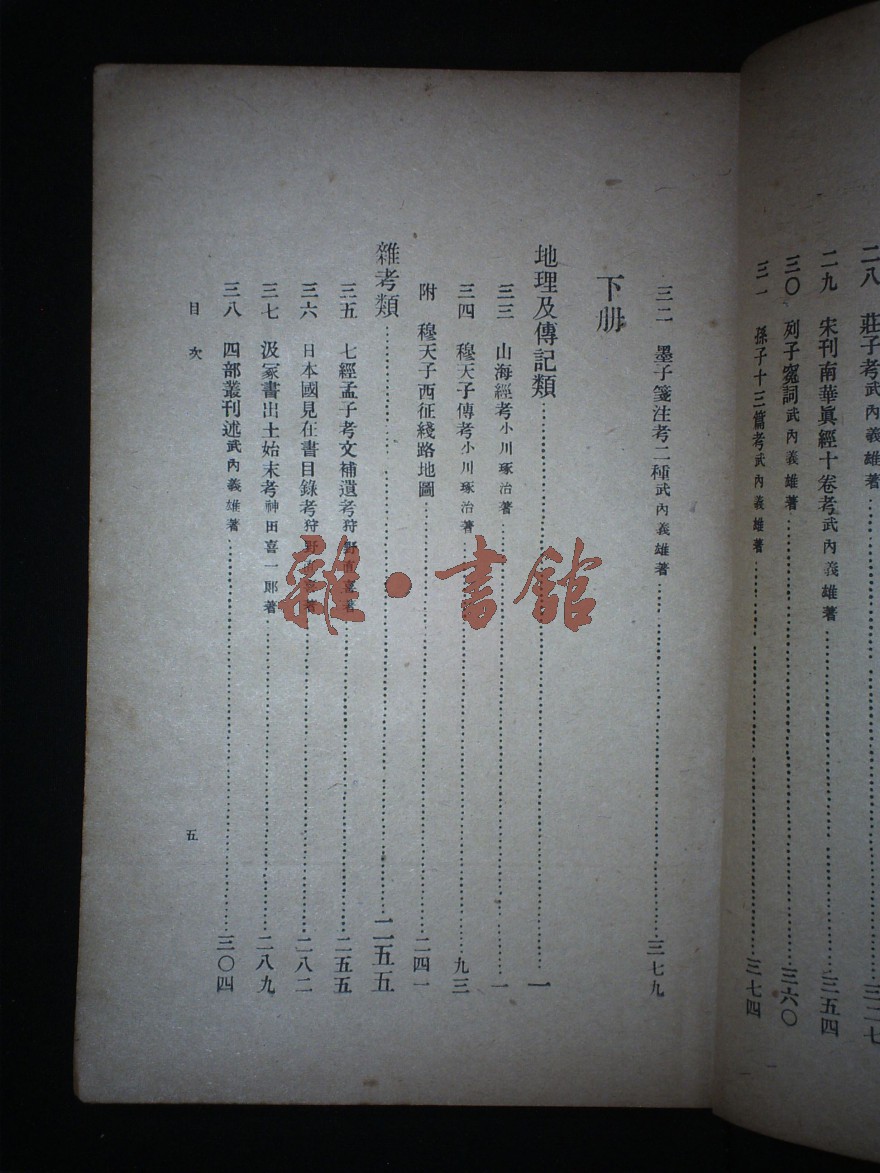 二八 莊子考武內義雄著…………三二七
二九 宋刊南華眞經十卷考武內義雄著…………三五四
三〇 列子寃詞武內義雄著…………三六〇
三一 孫子十三篇考武內義雄著…………三七四
三二 墨子箋注考二種武內義雄著…………三七九
下册
地理及傳記類…………一
三三 山海經考小川琢治著…………一
三四 穆天子傳考小川琢治著…………九三
附 穆天子西征綫路地圖…………二四一
雜考類…………二五五
三五 七經孟子考文補遺考狩野直喜著…………二五五
三六 日本國見在書目錄考狩野直喜著…………二八二
三七 汲冢書出土始末考神田喜一郎著…………二八九
三八 四部叢刊述武內義雄著…………三〇四
目次
五
雜·書館